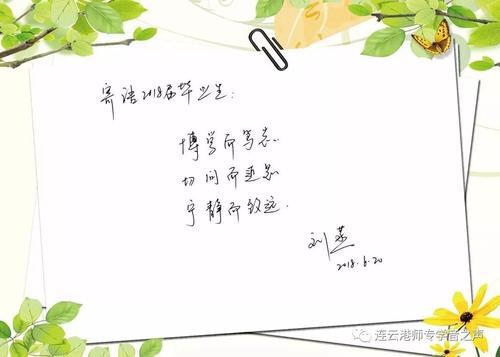 寄语2018届毕业生：
博学而笃志
切问而近思
宁静而致远.
刘燕
2018.6.20
连云港师专学音之声